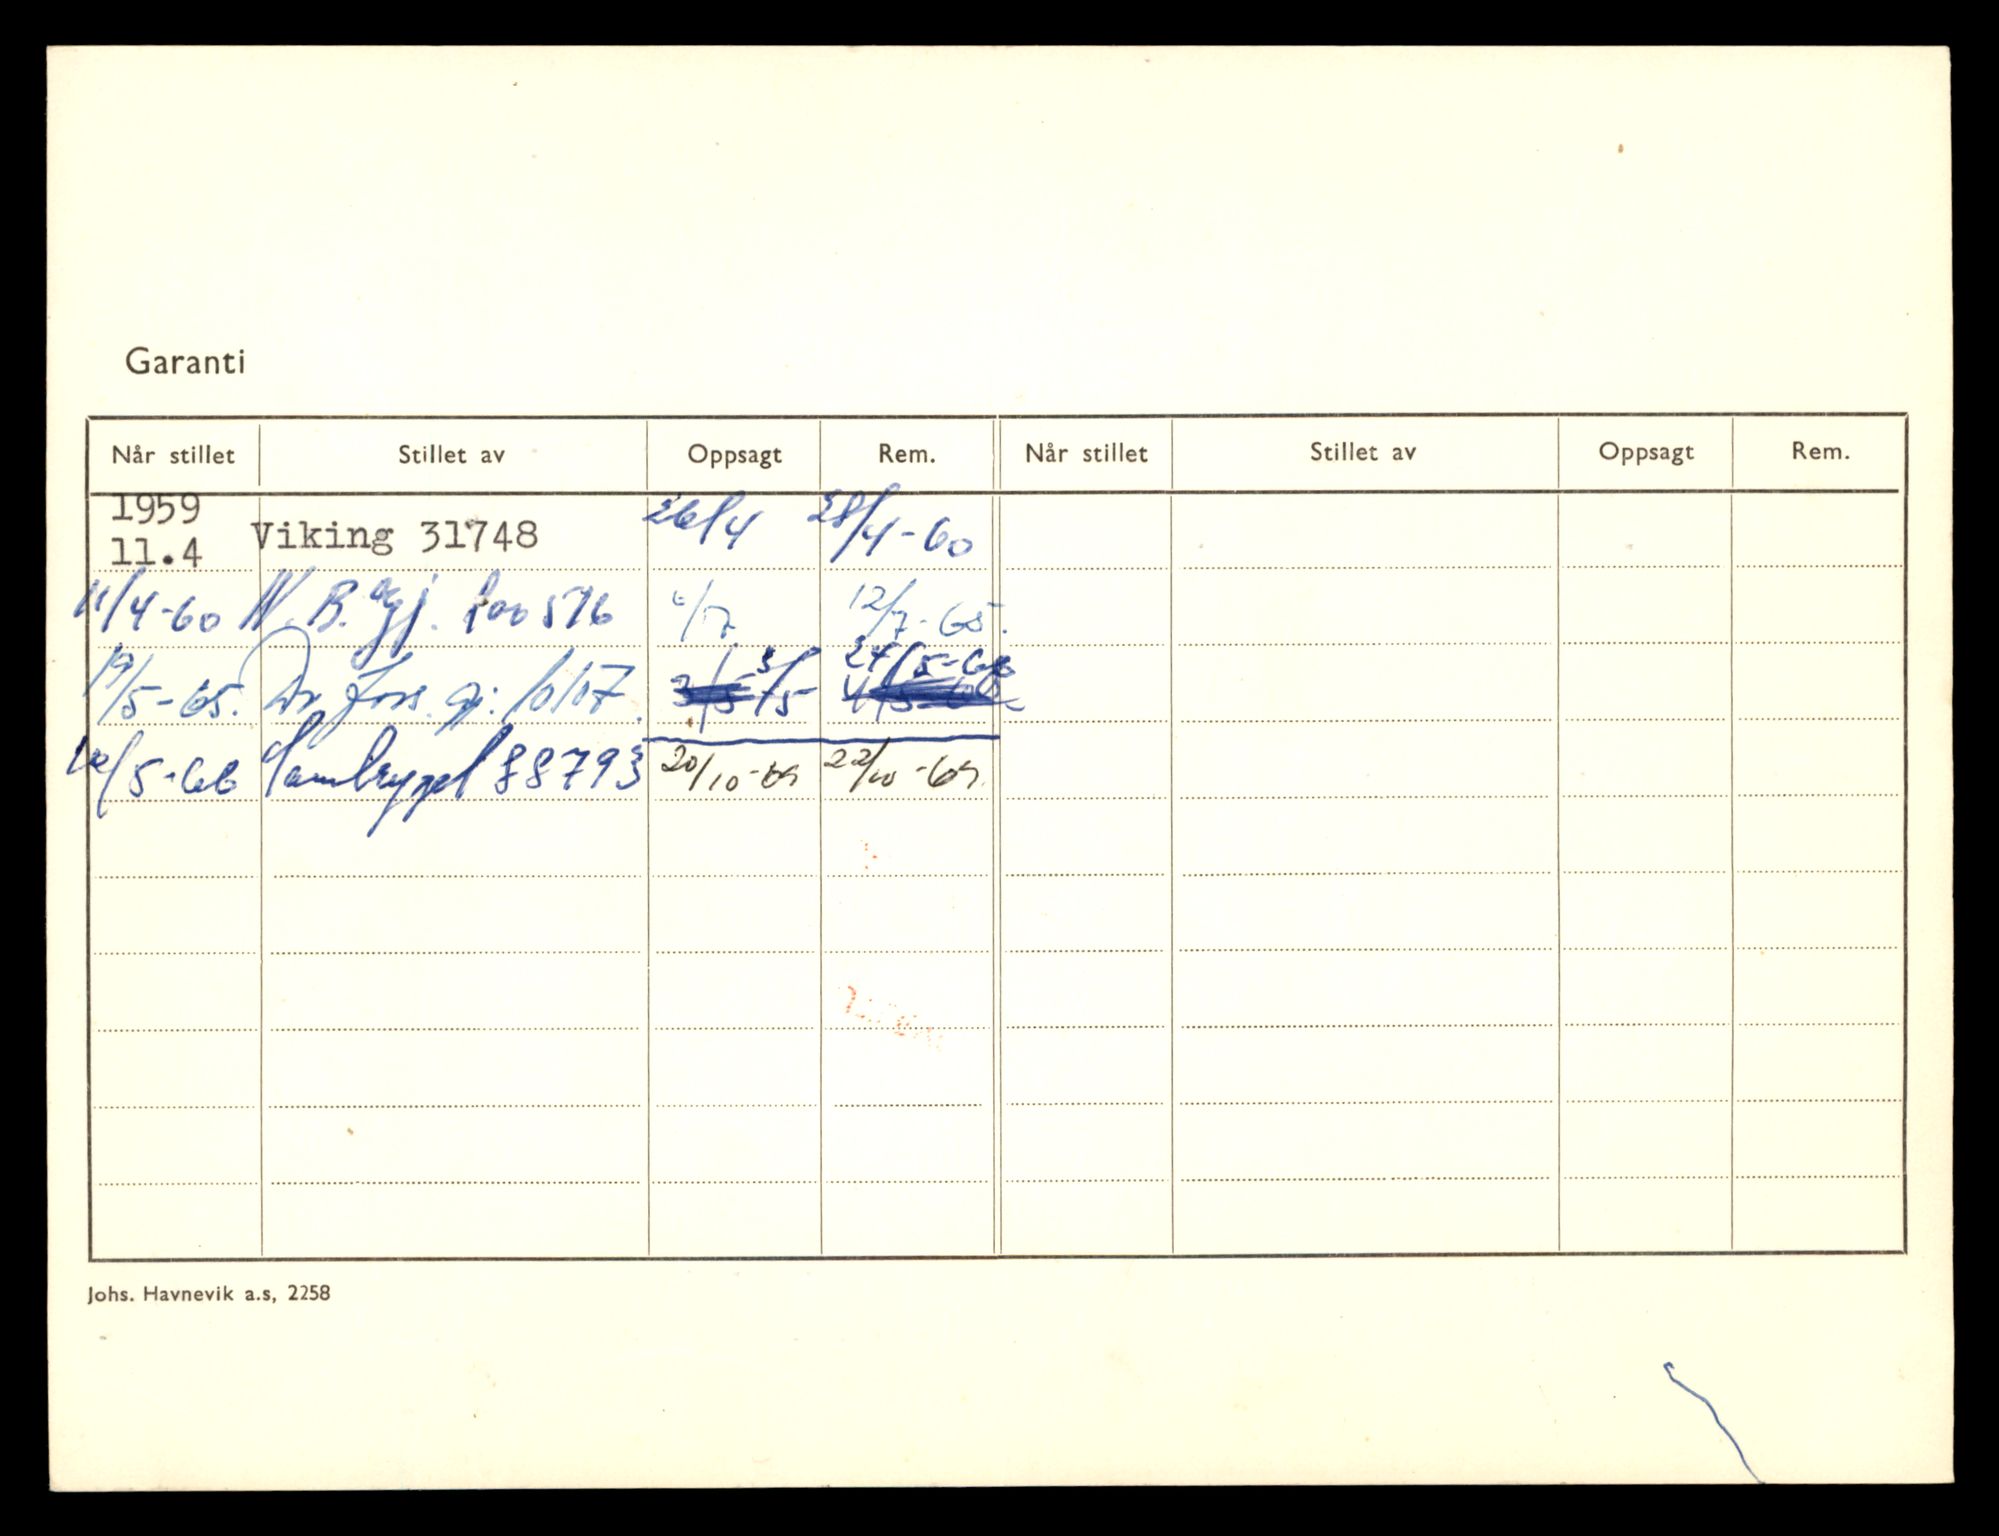 Garanti
Når stillet Stillet av Oppsagt Rem. Når stillet Stillet av Oppsagt Rem.
1959
11.4 Viking 31748 26/4 28/4-60
11/4-60 N. B. gj. 576 6/7 12/7-65.
19/5-65. gj: 3/5 24/5-66
/5-66 Samtrygd 88793 20/10-69 22/10-69.
Johs. Havnevik a.s, 2258